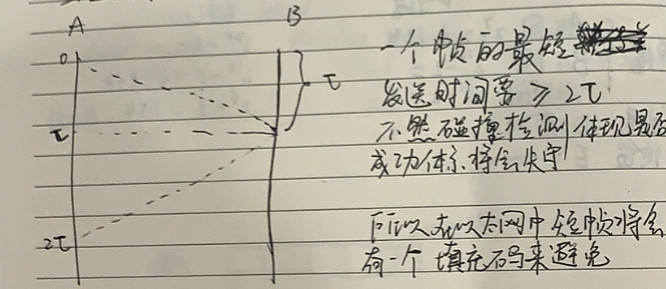 A
B
0
τ
τ
2τ
一个帧的最短
发送时间需 ≥ 2τ
不然碰撞检测体现是否
成功体系将会失守
所以在以太网中短帧将会
有一个填充码来避免